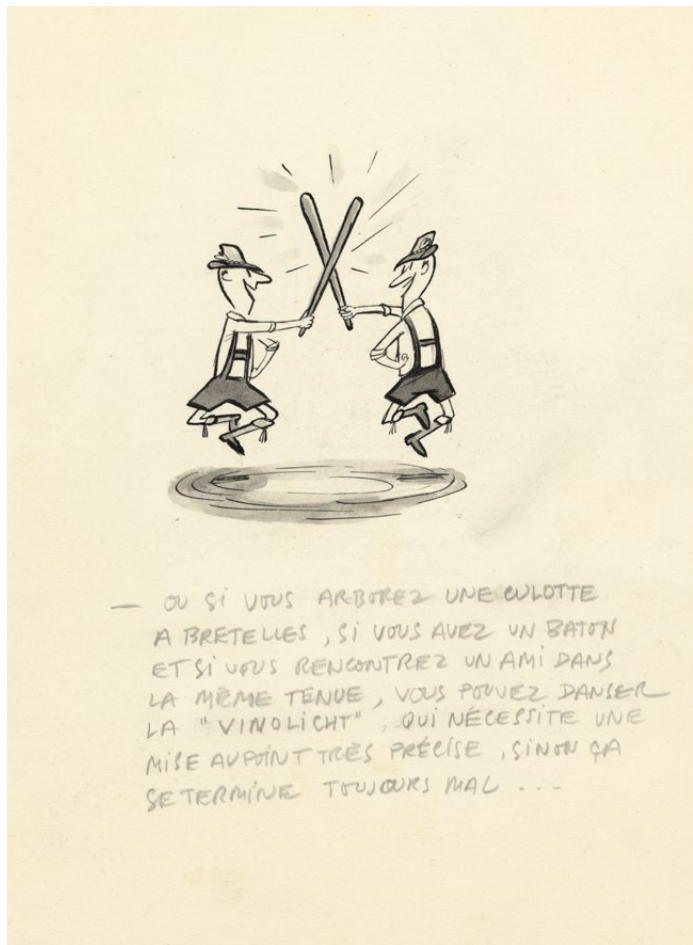 — OU SI VOUS ARBOREZ UNE CULOTTE
A BRETELLES, SI VOUS AVEZ UN BATON
ET SI VOUS RENCONTREZ UN AMI DANS
LA MÊME TENUE, VOUS POUVEZ DANSER
LA "VINOLICHT", QUI NÉCESSITE UNE
MISE AU POINT TRÈS PRÉCISE, SINON ÇA
SE TERMINE TOUJOURS MAL ...